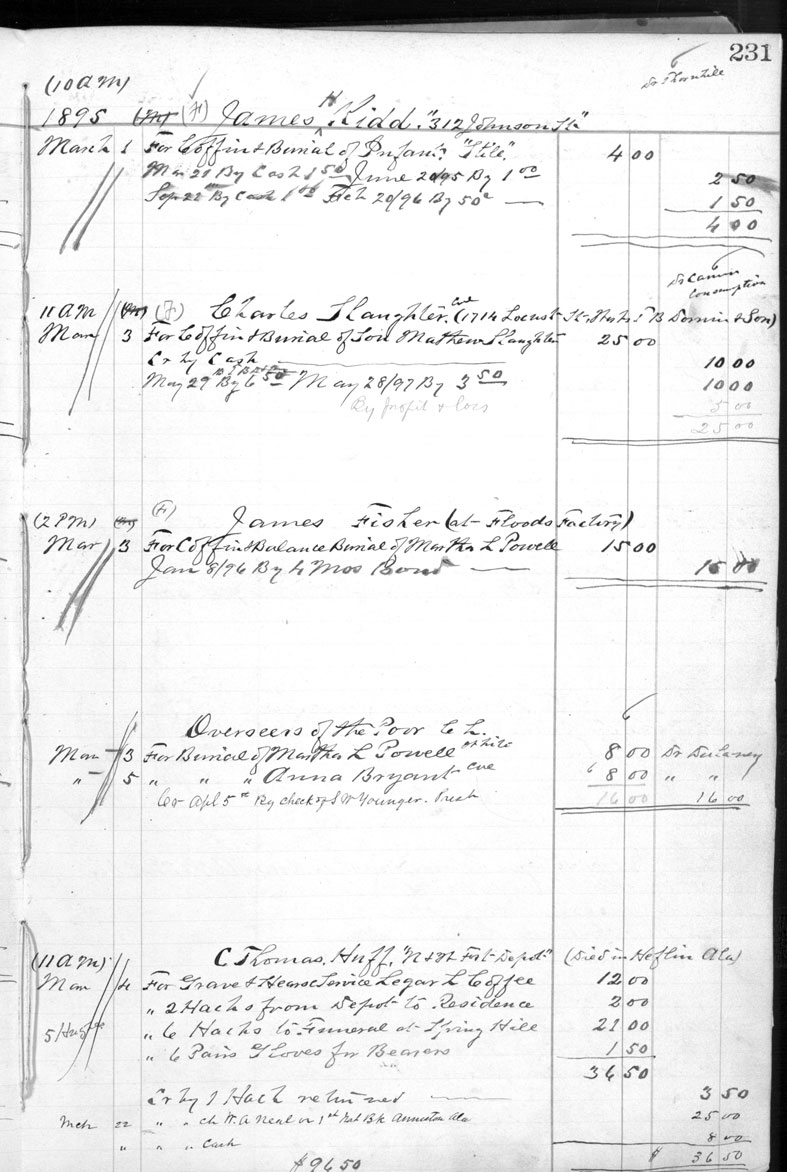 231
(10 a m) Dr Thornhill
1895 (H) James H Kidd. "312 Johnson St"
March 1 For Coffin & Burial of Infant. "Still". 4 00
Mar 21 By Cash 1 50 June 20/95 By 1 00 2 50
Sep 21 By Cash 1 00 Feb 20/96 By 50c 1 50
4 00
Dr Camm
Consumption
11 a m Charles Slaughter. Cold (1714 Locust St. & Son)
Mar 3 For Coffin & Burial of Son Mathew Slaughter 25 00
Cr by Cash 10 00
May 29 By 6 50 May 28/97 By 3 50 10 00
By profit & loss 5 00
25 00
(2 P m) James Fisher (at Floods Factory)
Mar 3 For Coffin & Balance Burial of Martha L Powell 15 00
Jan 8/96 By 15 00
Overseers of the Poor
Mar 3 For Burial of Martha L Powell White 8 00 Dr Dulaney
" 5 " " " Anna Bryant Cold 8 00 " "
Cr Apl 5th By check of S W Younger. Prest 16 00 16 00
(11 a m) C Thomas. Huff, "N & W Frt Depot" (Died in Heflin Ala)
Mar 4 For Grave & Hearse Service Legar L Coffee 12 00
" 2 Hacks from Depot to Residence 2 00
" 6 Hacks to Funeral at Spring Hill 21 00
" 6 Pairs Gloves for Bearers 1 50
36 50
Cr by 1 Hack returned 3 50
Mch 22 " " ch W. A Neal on 1st Nat Bk Anniston Ala 25 00
" " " Cash 8 00
$ 96 50 $ 36 50